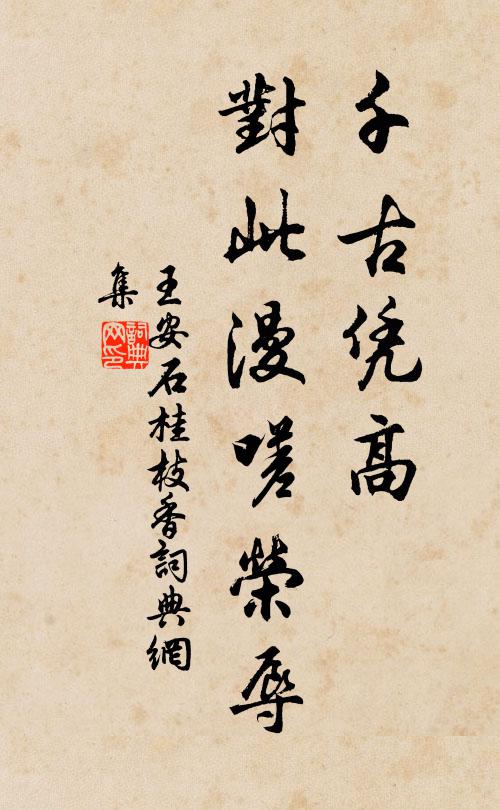 千古凭高
對此漫嗟榮辱
王安石桂枝香詞典網
集
詞典网印